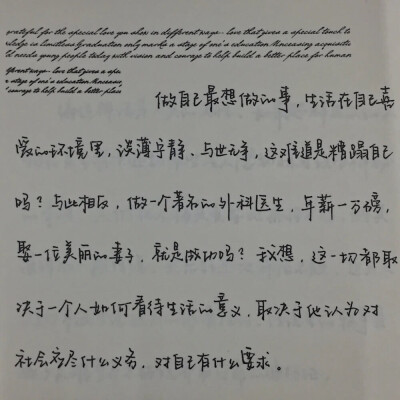 grateful for the special love you show in different ways love that gives a special touch to
ledge is limitless Graduation only marks a stage of one's education Unceasing acquisitio
ld needs young people today with vision and courage to help build a better place for human
fferent ways love that gives a spe
a stage of one's education Unceasin
courage to help build a better place
做自己最想做的事，生活在自己喜
爱的环境里，淡薄宁静、与世无争，这难道是糟蹋自己
吗？与此相反，做一个著名的外科医生，年薪一万磅，
娶一位美丽的妻子，就是成功吗？我想，这一切都取
决于一个人如何看待生活的意义，取决于他认为对
社会应尽什么义务，对自己有什么要求。